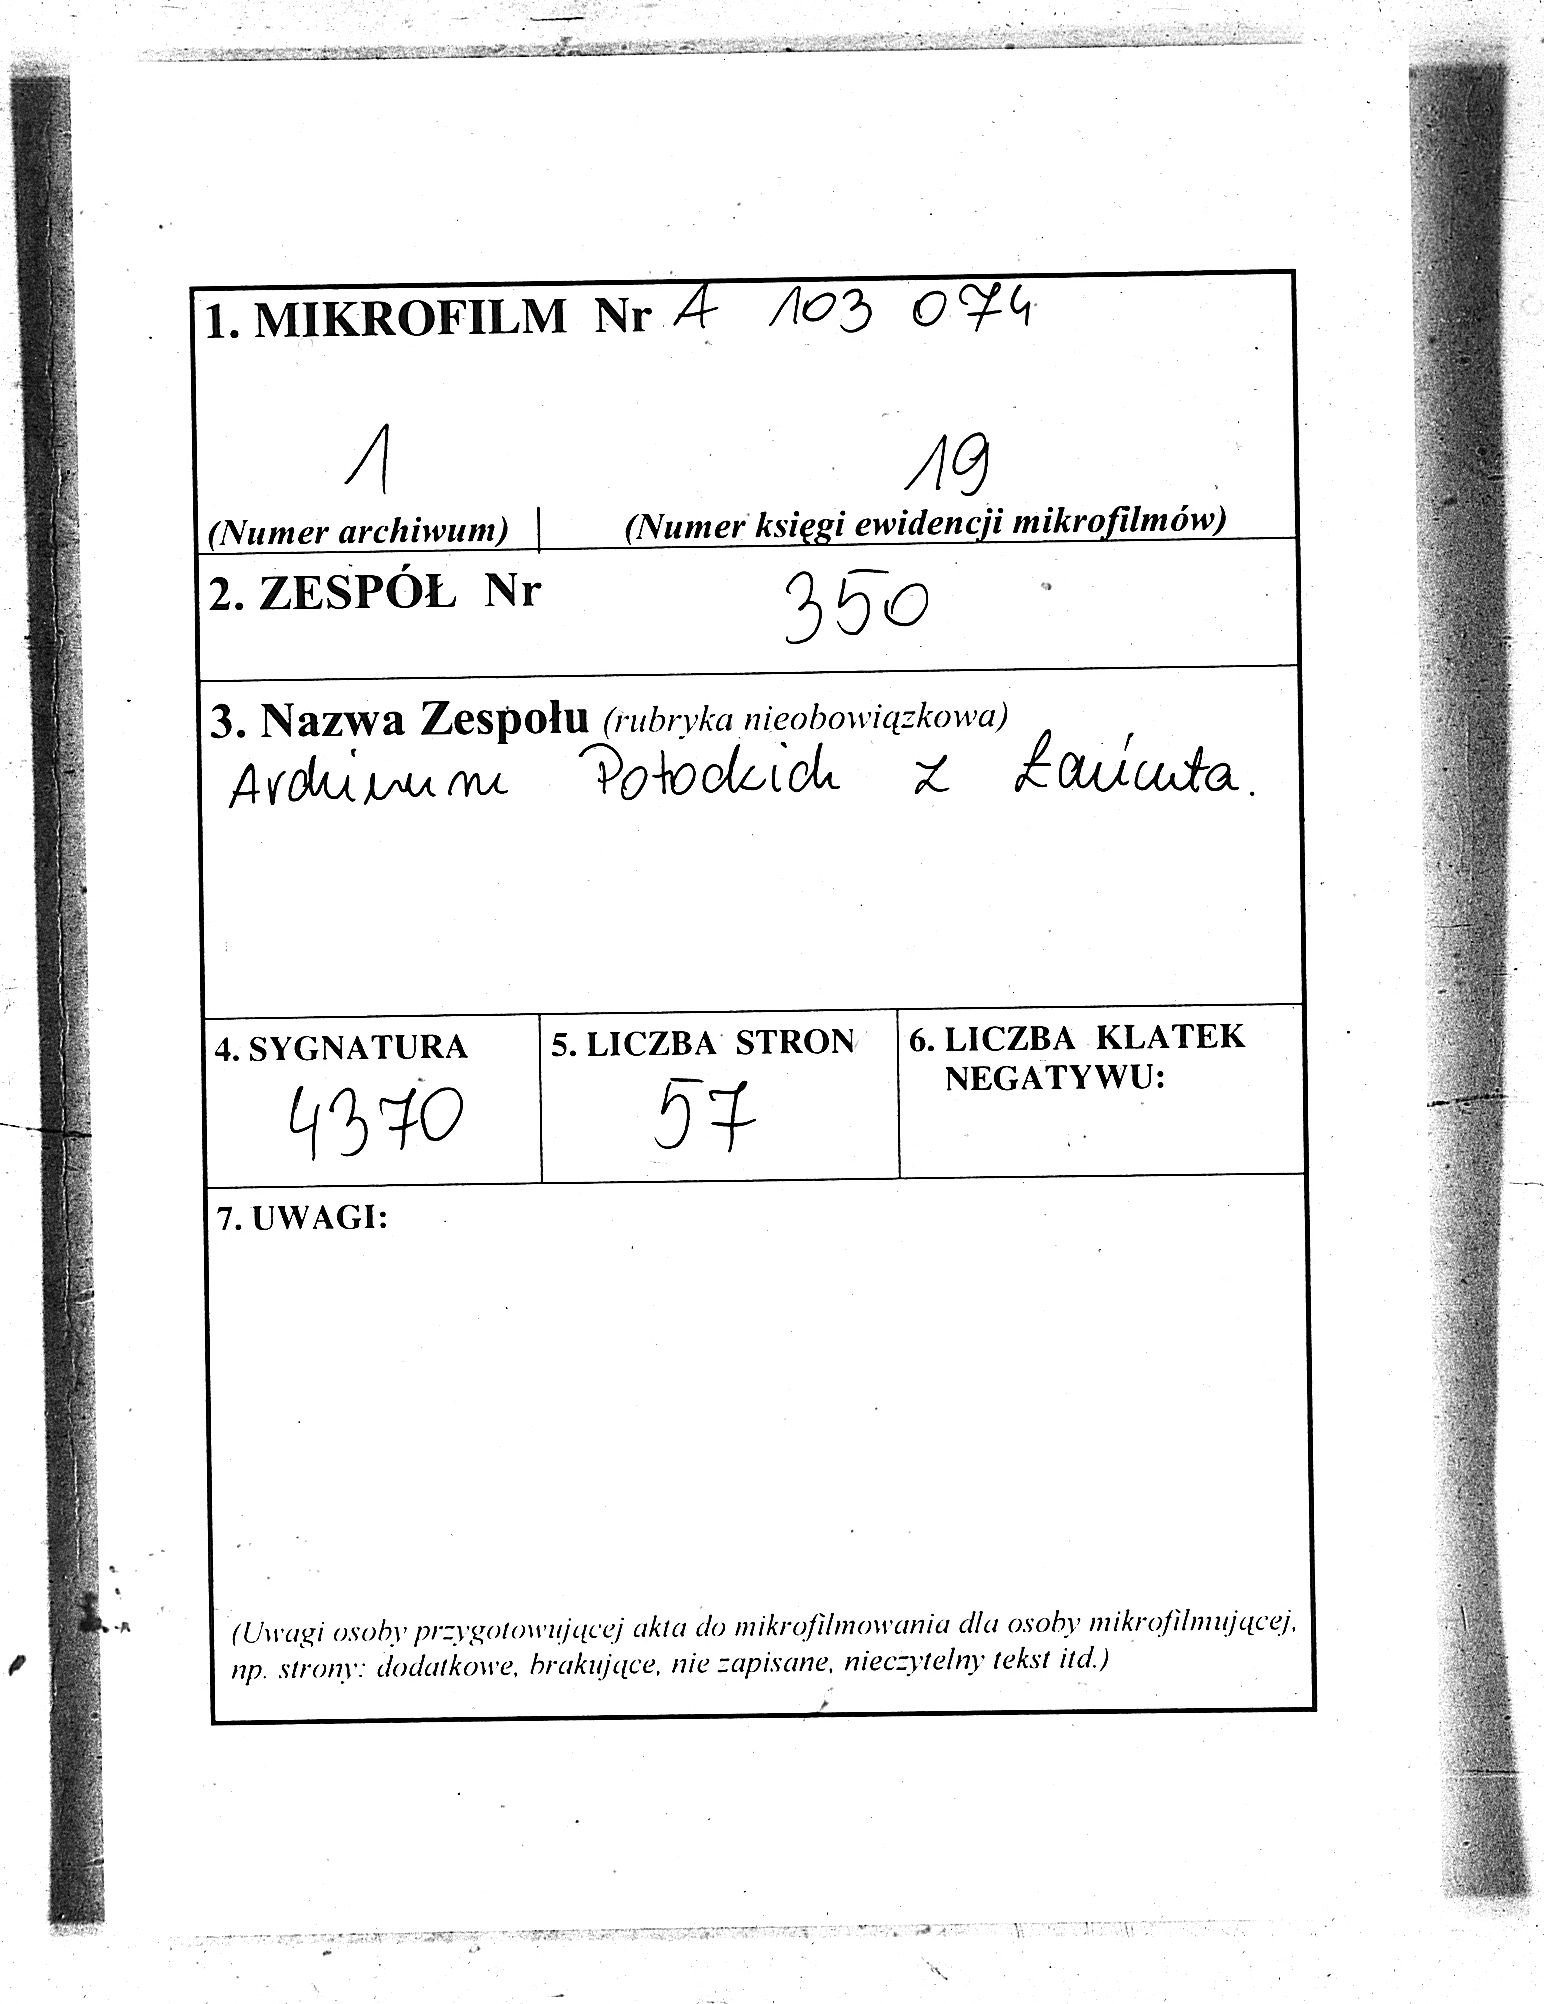 1. MIKROFILM Nr A 103 074
1 19
(Numer archiwum) (Numer księgi ewidencji mikrofilmów)
2. ZESPÓŁ Nr 350
3. Nazwa Zespołu (rubryka nieobowiązkowa)
Archiwum Potockich z Łańcuta.
4. SYGNATURA 5. LICZBA STRON 6. LICZBA KLATEK
NEGATYWU:
4370 57
7. UWAGI:
(Uwagi osoby przygotowującej akta do mikrofilmowania dla osoby mikrofilmującej,
np. strony: dodatkowe, brakujące, nie zapisane, nieczytelny tekst itd.)